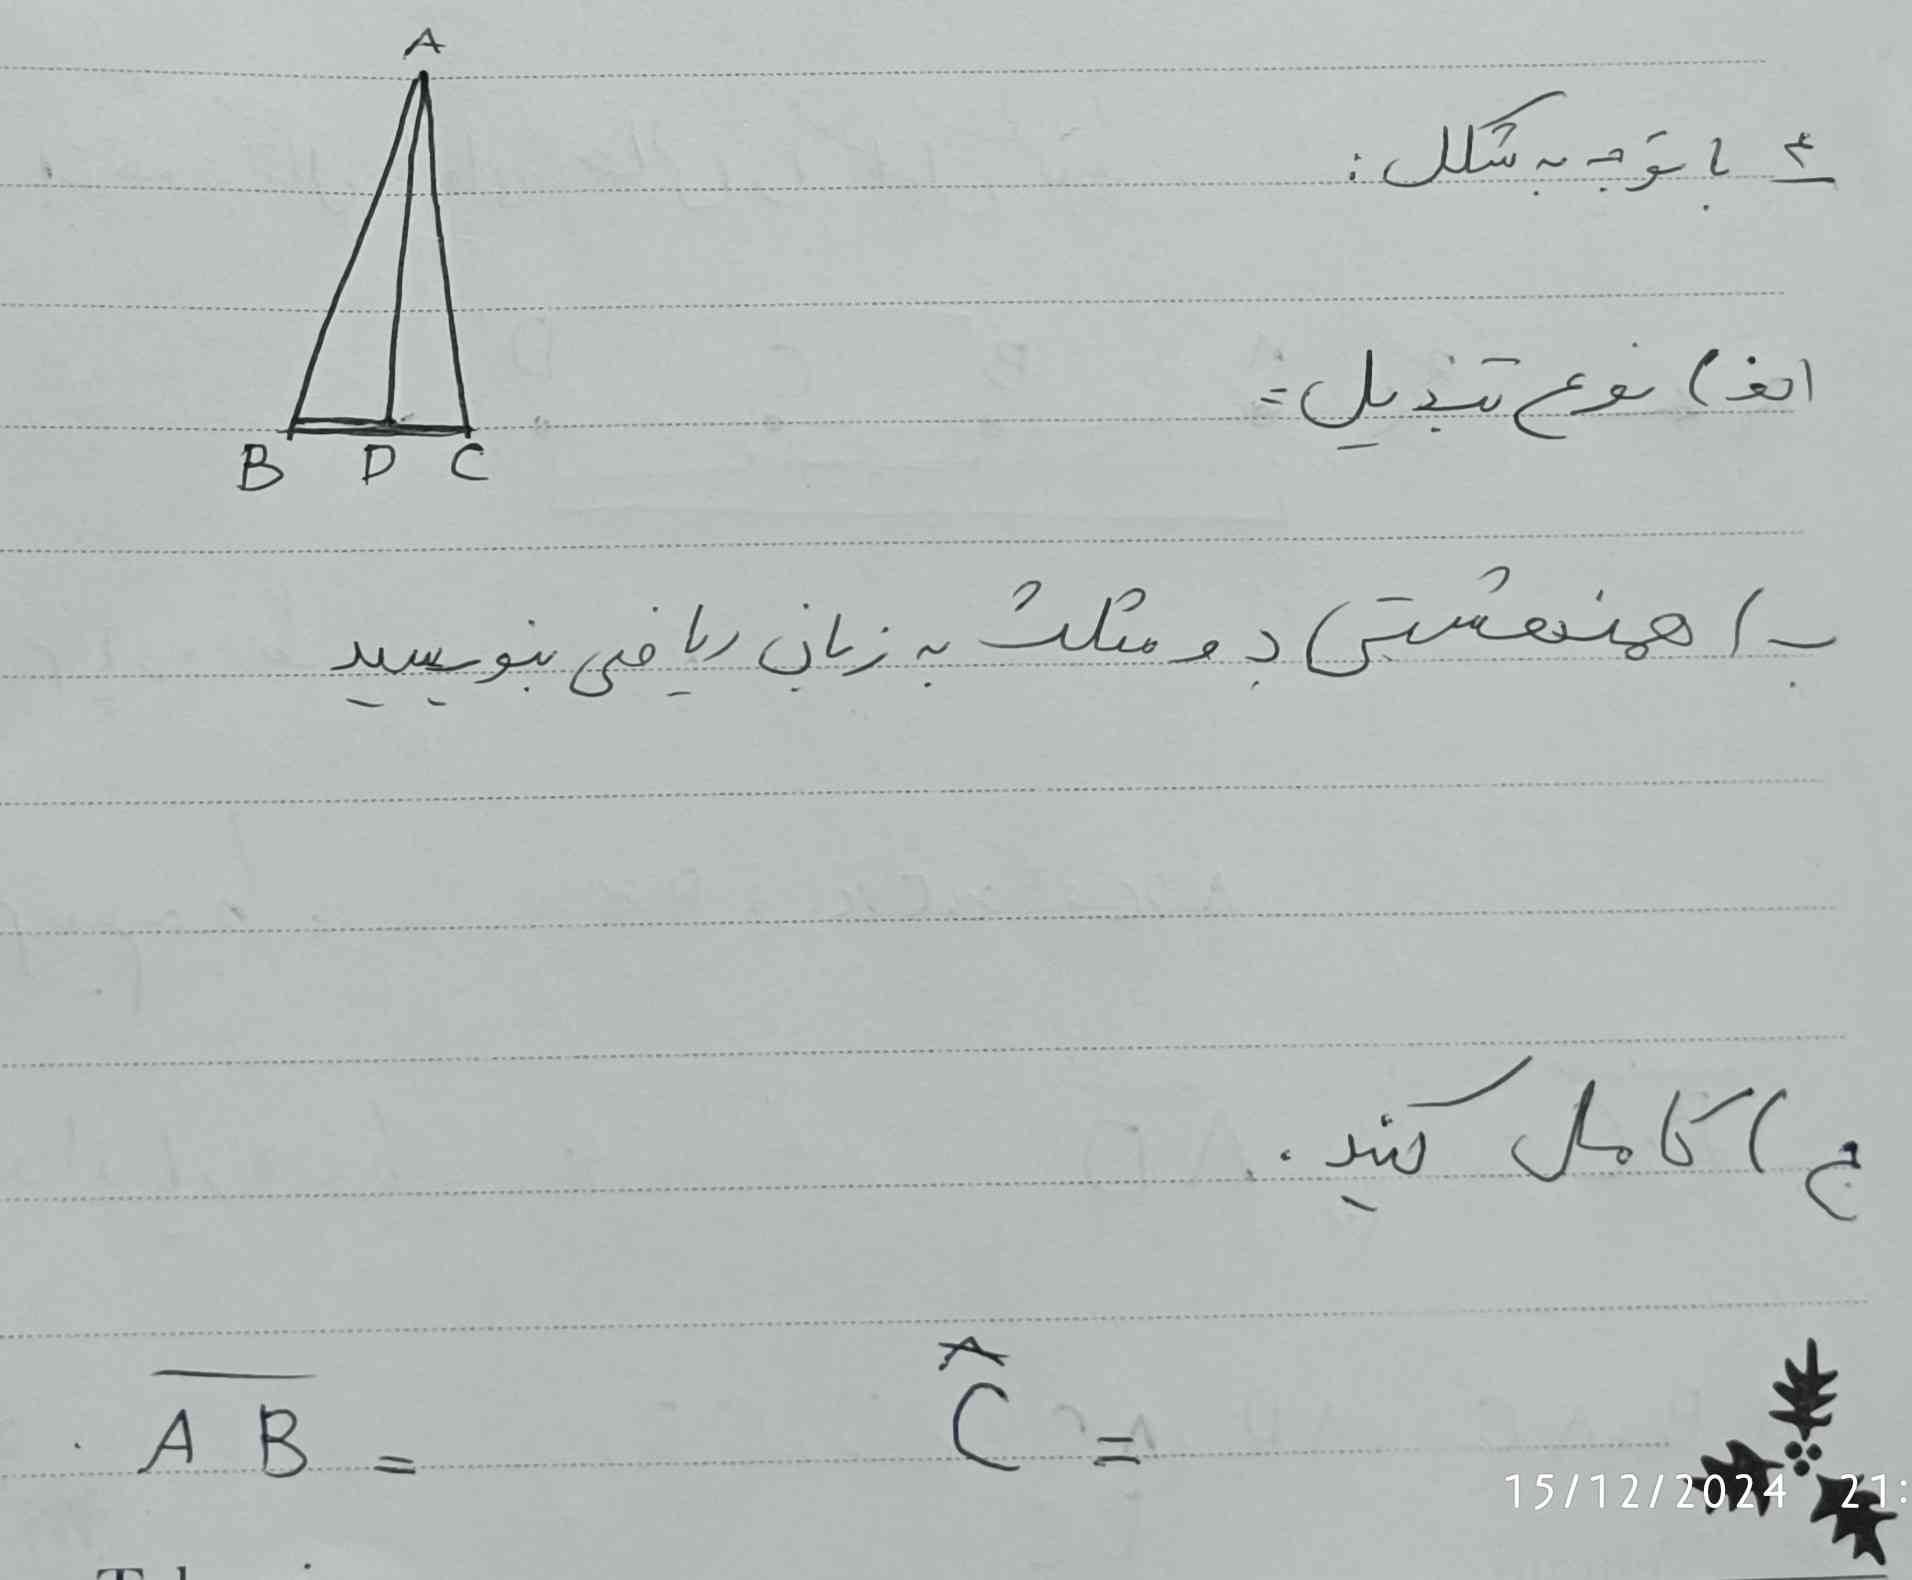 A
۴ با توجه به شکل :
B D C
الف) نوع تبدیل =
ب) همنهشتی دو مثلث به زبان ریاضی بنویسید
ج) کامل کنید .
AB = Ĉ =
15/12/2024 21: